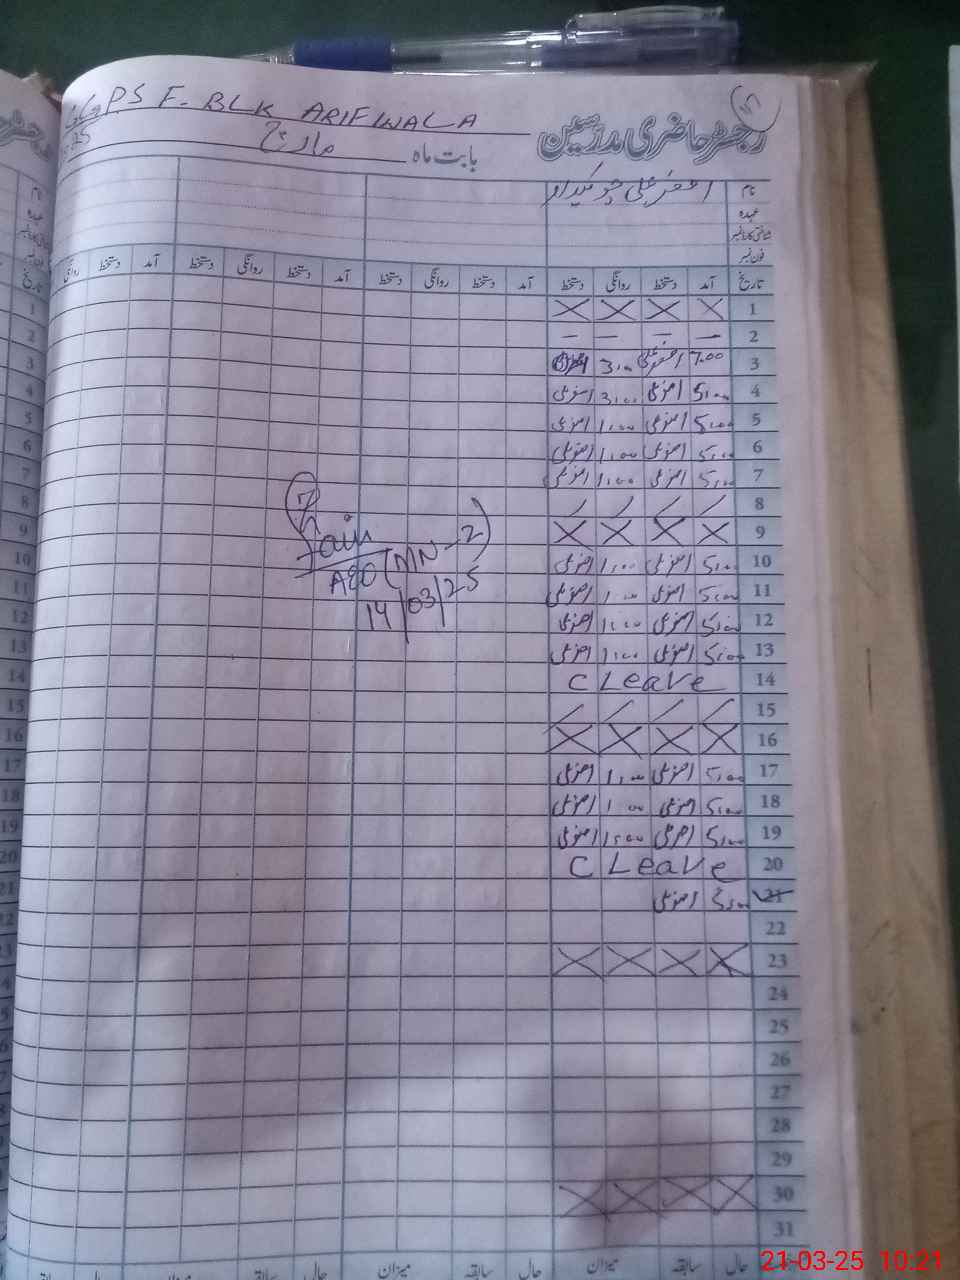 GGPS F. BLK ARIFWALA
رجسٹر حاضری مدرسین
بابت ماہ مارچ
نام اصغر علی چوکیدار
عہدہ
شناختی کارڈ نمبر
فون نمبر
تاریخ آمد دستخط روانگی دستخط آمد دستخط روانگی دستخط آمد دستخط روانگی دستخط آمد دستخط روانگی
1 X X X X
2 – – – –
3 7.00 اصغر علی 3:00
4 5:00 اصغر علی 3:00 اصغر علی
5 5:00 اصغر علی 1:00 اصغر علی
6 5:00 اصغر علی 1:00 اصغر علی
7 5:00 اصغر علی 1:00 اصغر علی
8 / / / /
9 X X X X
10 5:00 اصغر علی 1:00 اصغر علی
11 5:00 اصغر علی 1:00 اصغر علی
12 5:00 اصغر علی 1:00 اصغر علی
13 5:00 اصغر علی 1:00 اصغر علی
14 C Leave
15 / / / /
16 X X X X
17 5:00 اصغر علی 1:00 اصغر علی
18 5:00 اصغر علی 1:00 اصغر علی
19 5:00 اصغر علی 1:00 اصغر علی
20 C Leave
21 5:00 اصغر علی
22
23 X X X X
24
25
26
27
28
29
30 X X X X
31
7
AEO (MN-2)
14/03/25
حال سابقہ میزان حال سابقہ میزان حال سابقہ میزان حال
21-03-25 10:21